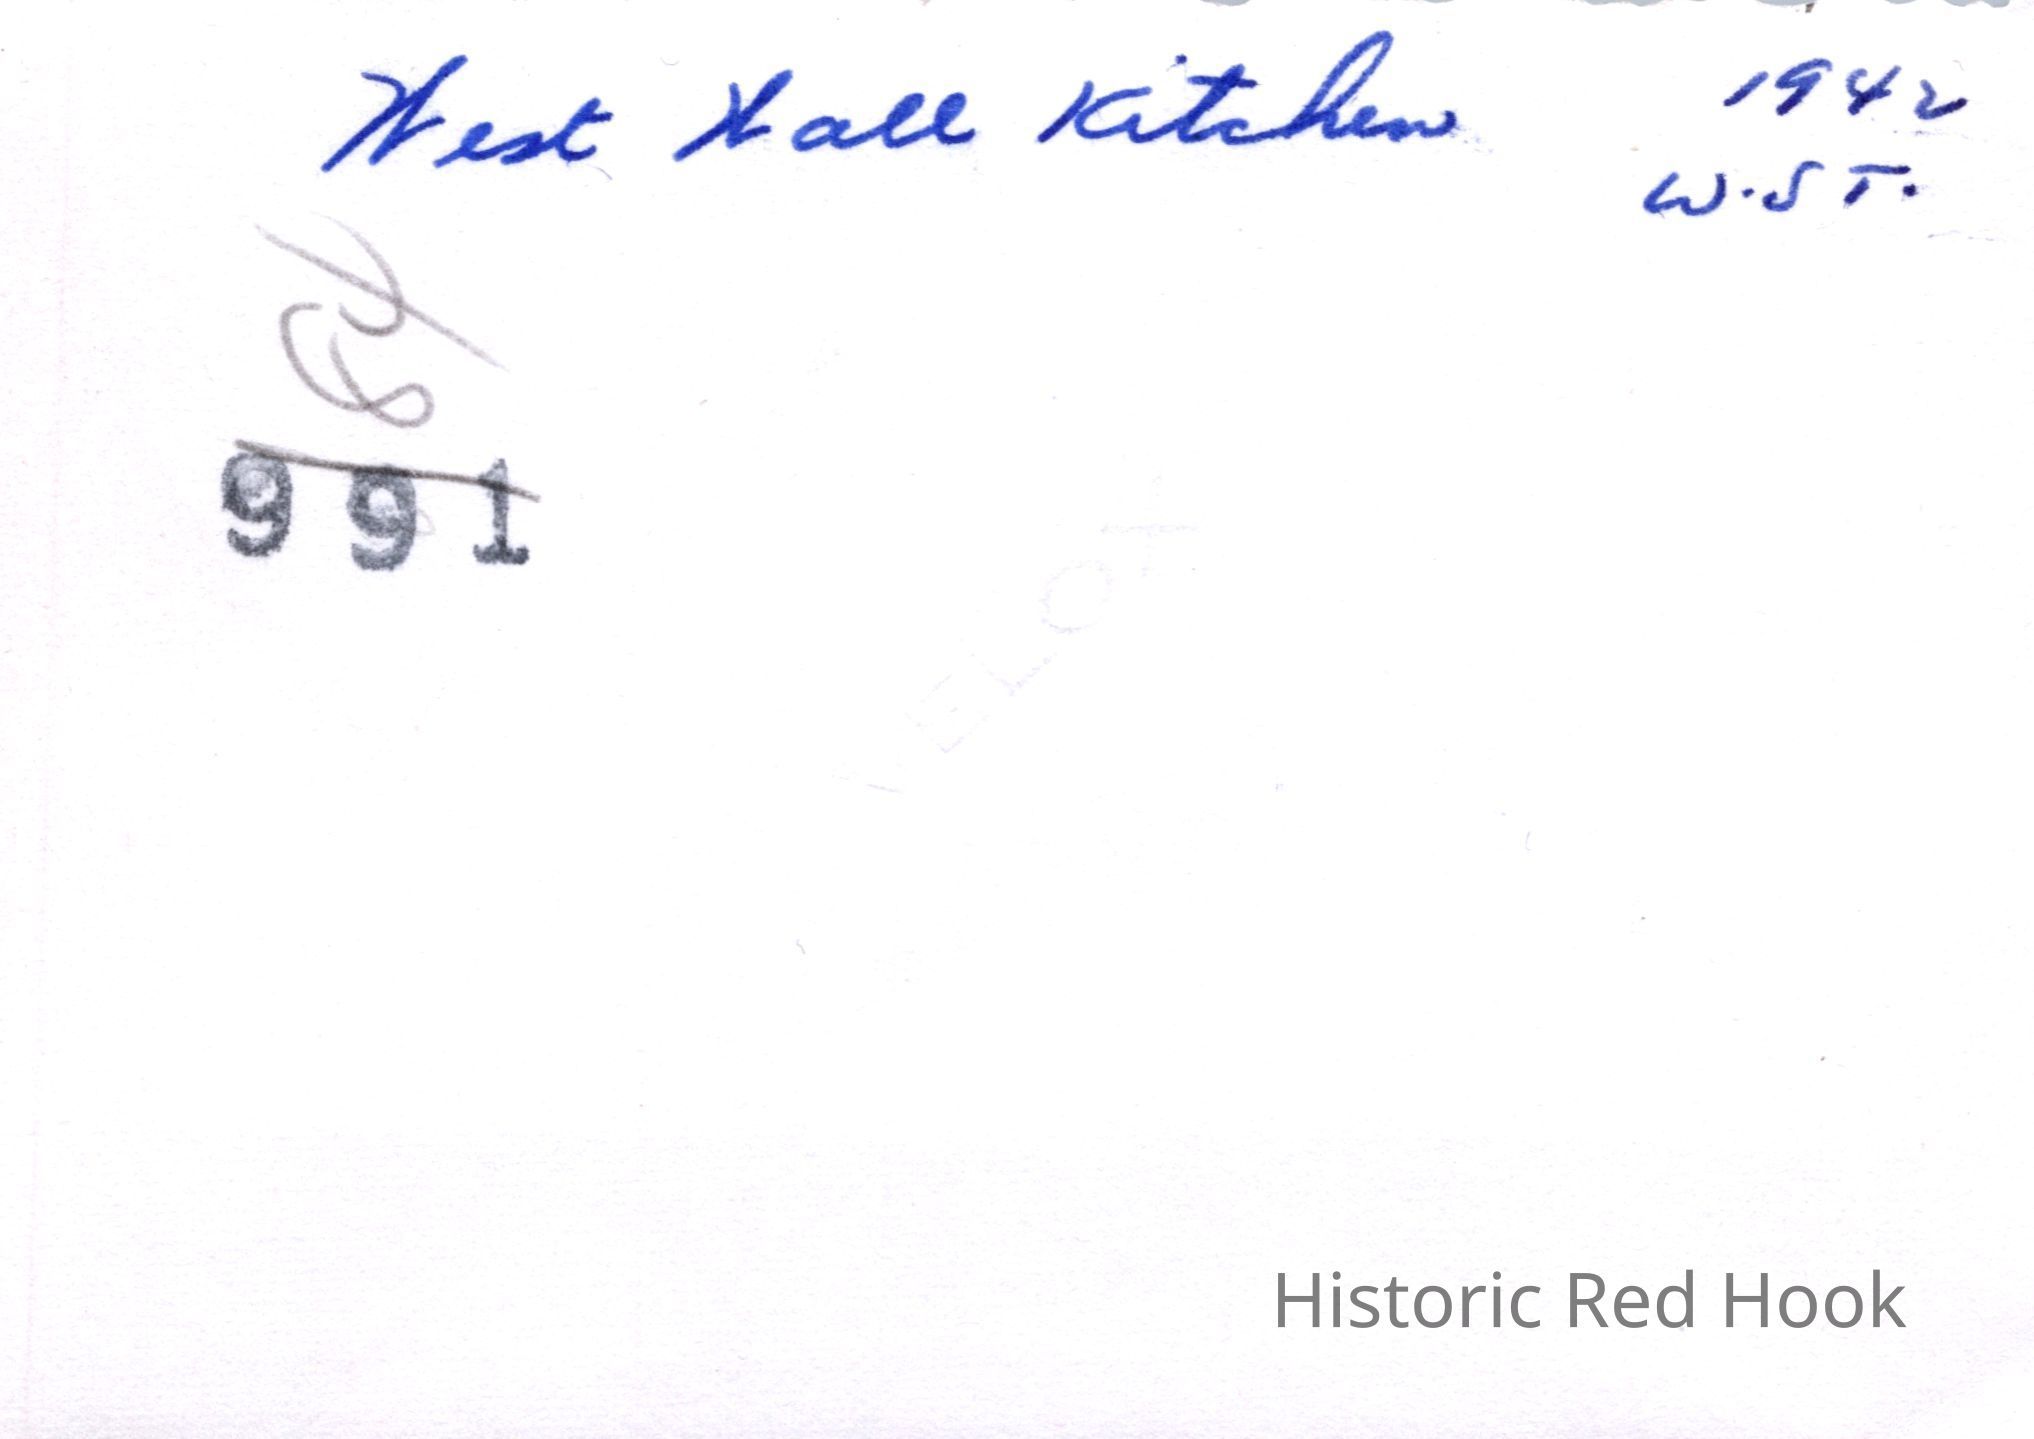 West Hall Kitchen 1942
W.S T.
991
VELOX
Historic Red Hook